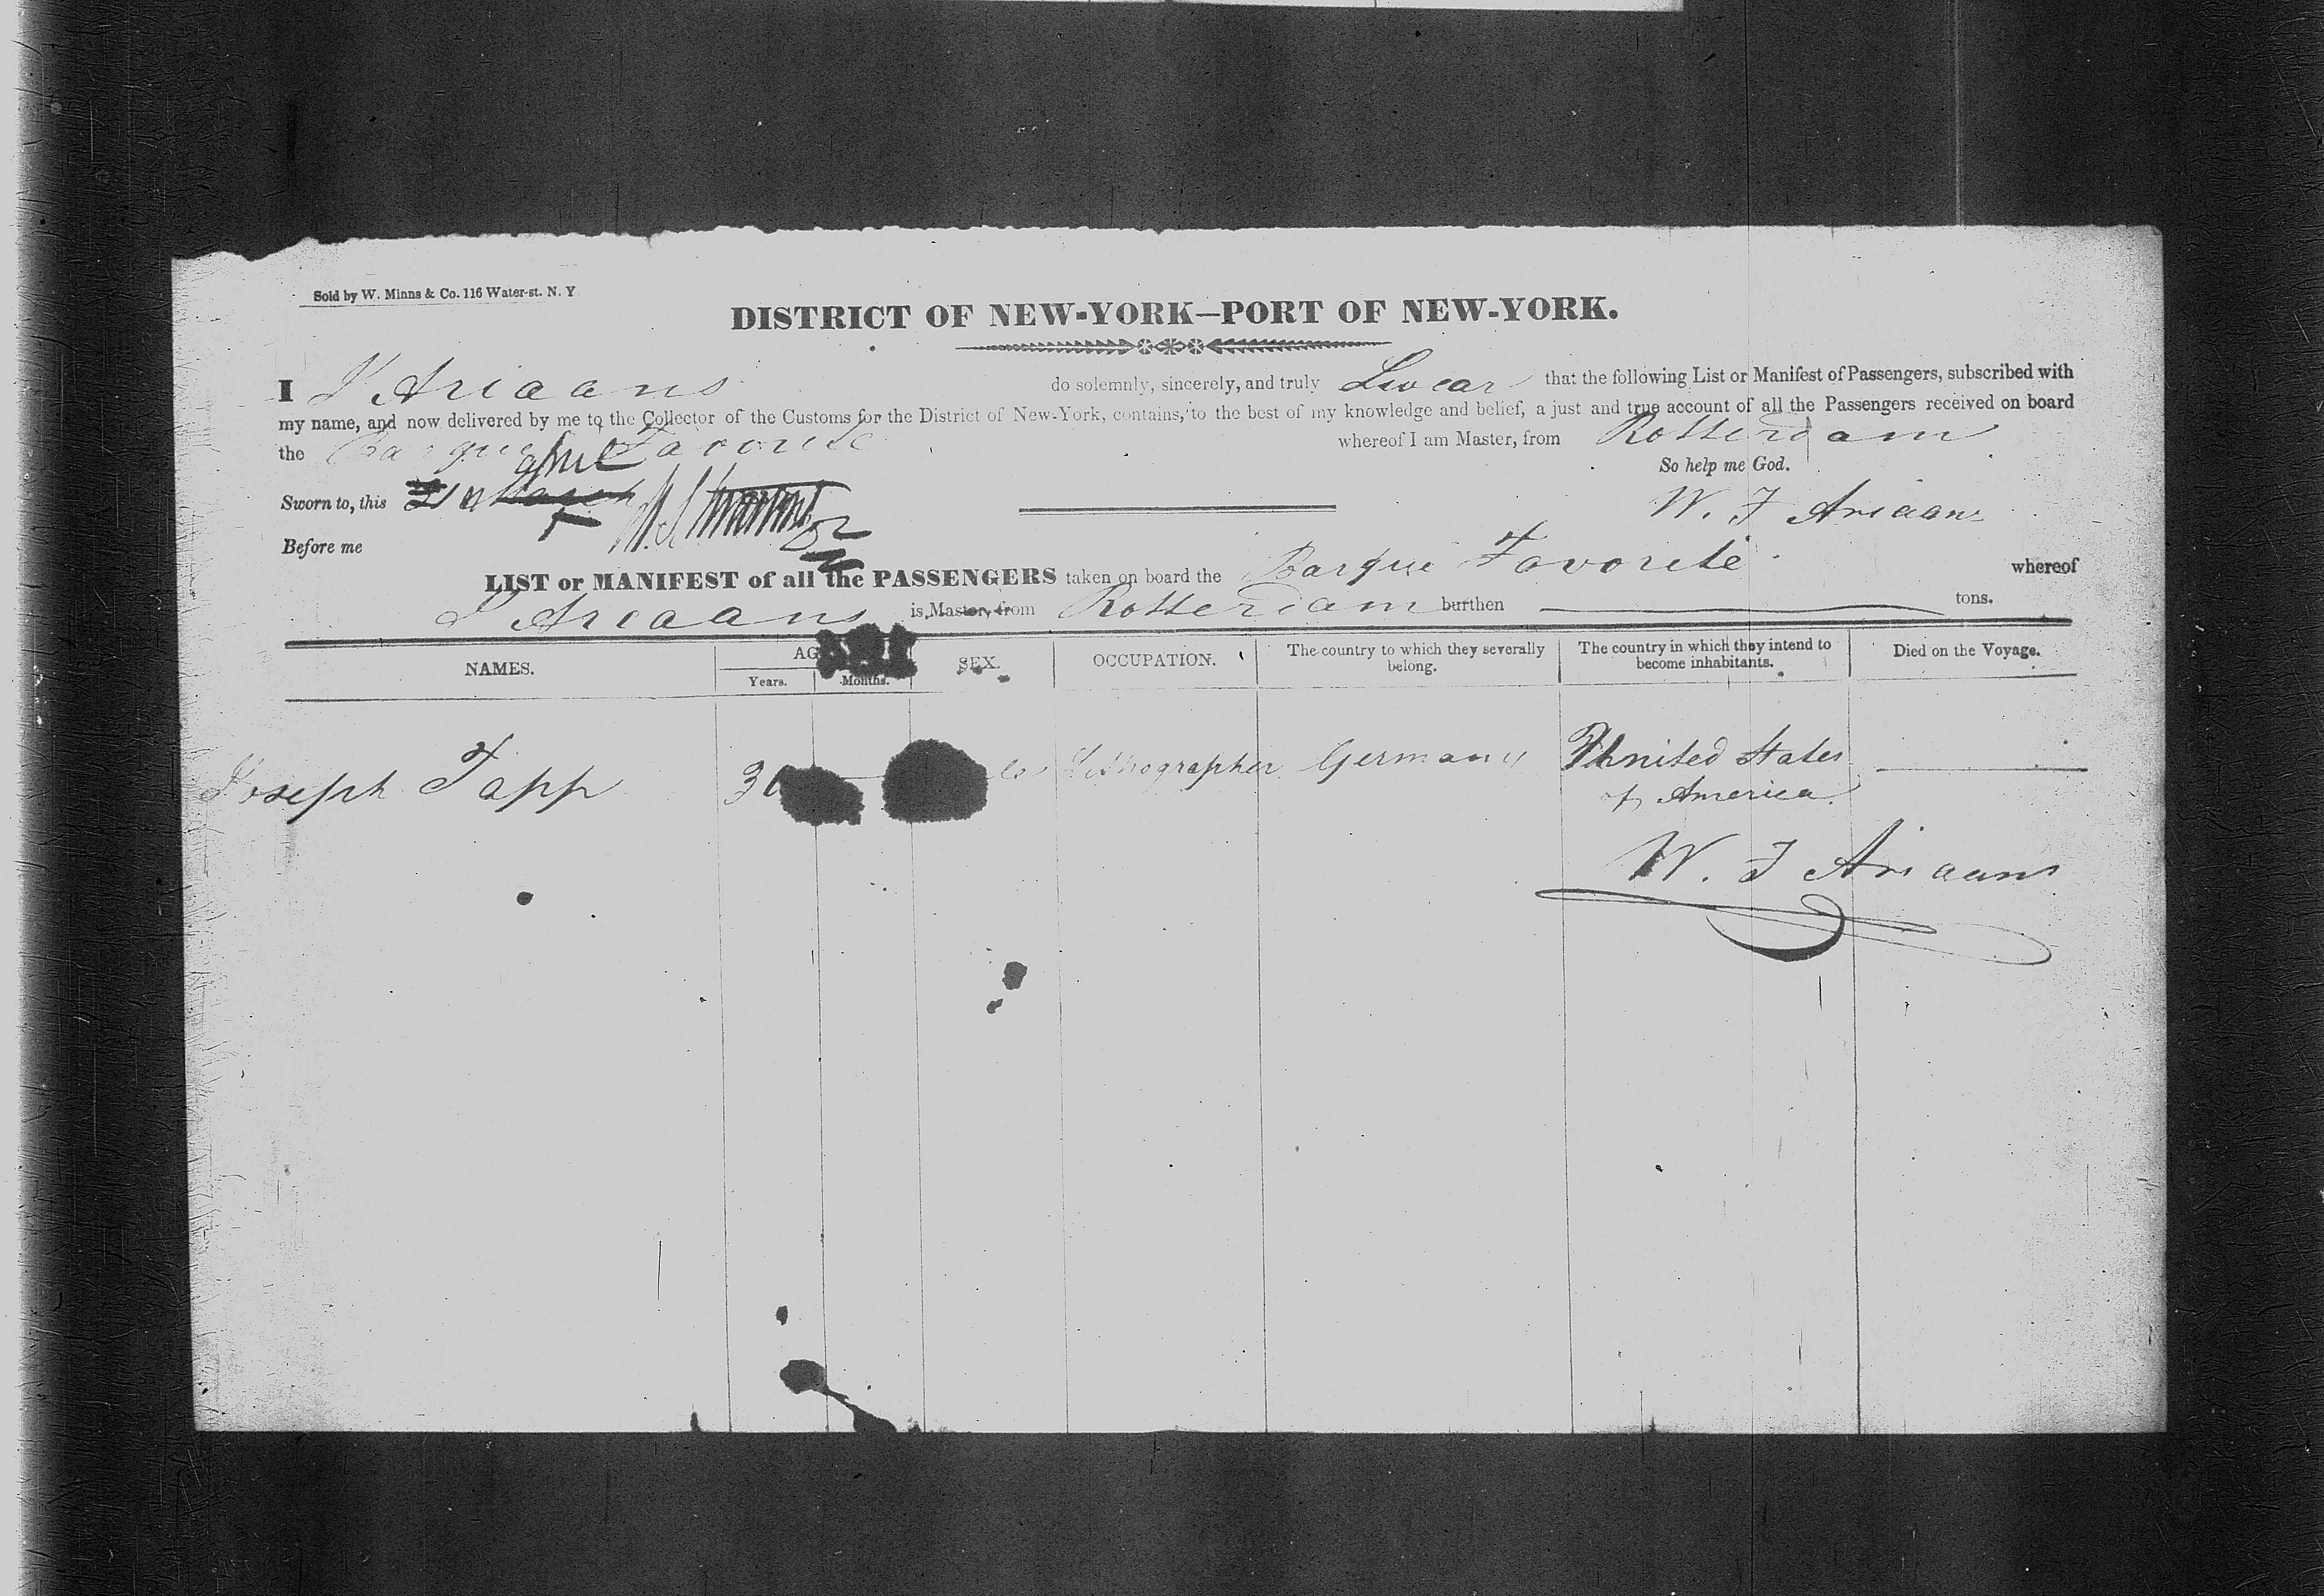 Sold by W. Minns & Co. 116 Water-st. N. Y
DISTRICT OF NEW-YORK—PORT OF NEW-YORK.
I J Ariaans do solemnly, sincerely, and truly Swear that the following List or Manifest of Passengers, subscribed with
my name, and now delivered by me to the Collector of the Customs for the District of New-York, contains, to the best of my knowledge and belief, a just and true account of all the Passengers received on board
the Barque Favorite whereof I am Master, from Rotterdam
So help me God.
Sworn to, this April
W. F Ariaans
Before me
LIST or MANIFEST of all the PASSENGERS taken on board the Barque Favorite whereof
J Ariaans is Master, from Rotterdam burthen tons.
NAMES. AG SEX. OCCUPATION. The country to which they severally belong. The country in which they intend to become inhabitants. Died on the Voyage.
Years. Months.
Joseph Tapp 30 Lithographer Germany United States
of America
W. F Ariaans